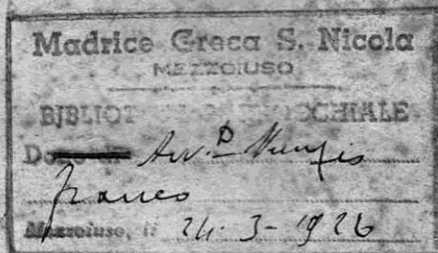 Madrice Greca S. Nicola
MEZZOIUSO
BIBLIOTECA PARROCCHIALE
franco
Mezzoiuso, li 24-3-1926